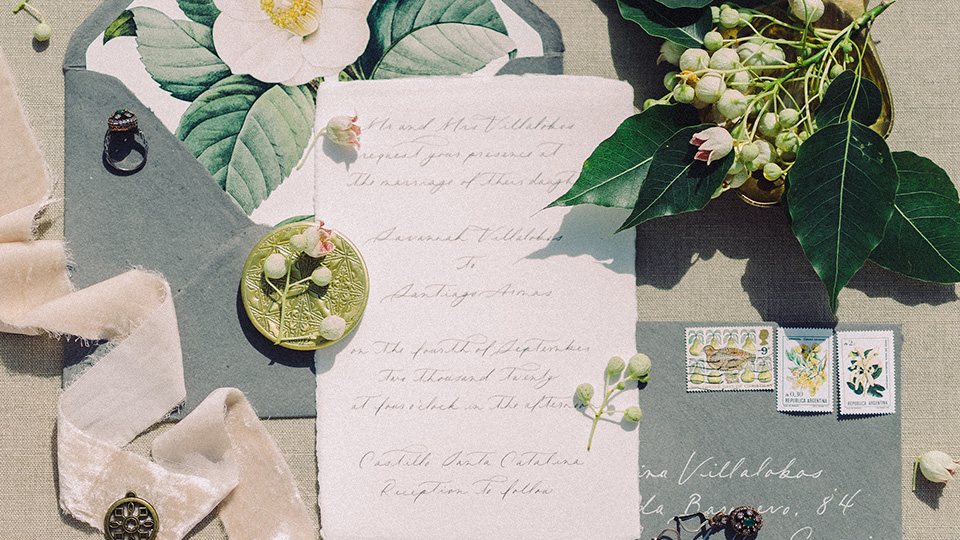 Mr and Mrs Villalobos
request your presence at
the marriage of their daugh
Savannah Villalobos
to
Santiago Armas
on the fourth of September
two thousand twenty
at four o'clock in the aftern
Castillo Santa Catalina
Reception to follow
9
₳0,30
REPUBLICA ARGENTINA
₳2.
REPUBLICA ARGENTINA
ina Villalobos
da Barnero, 84